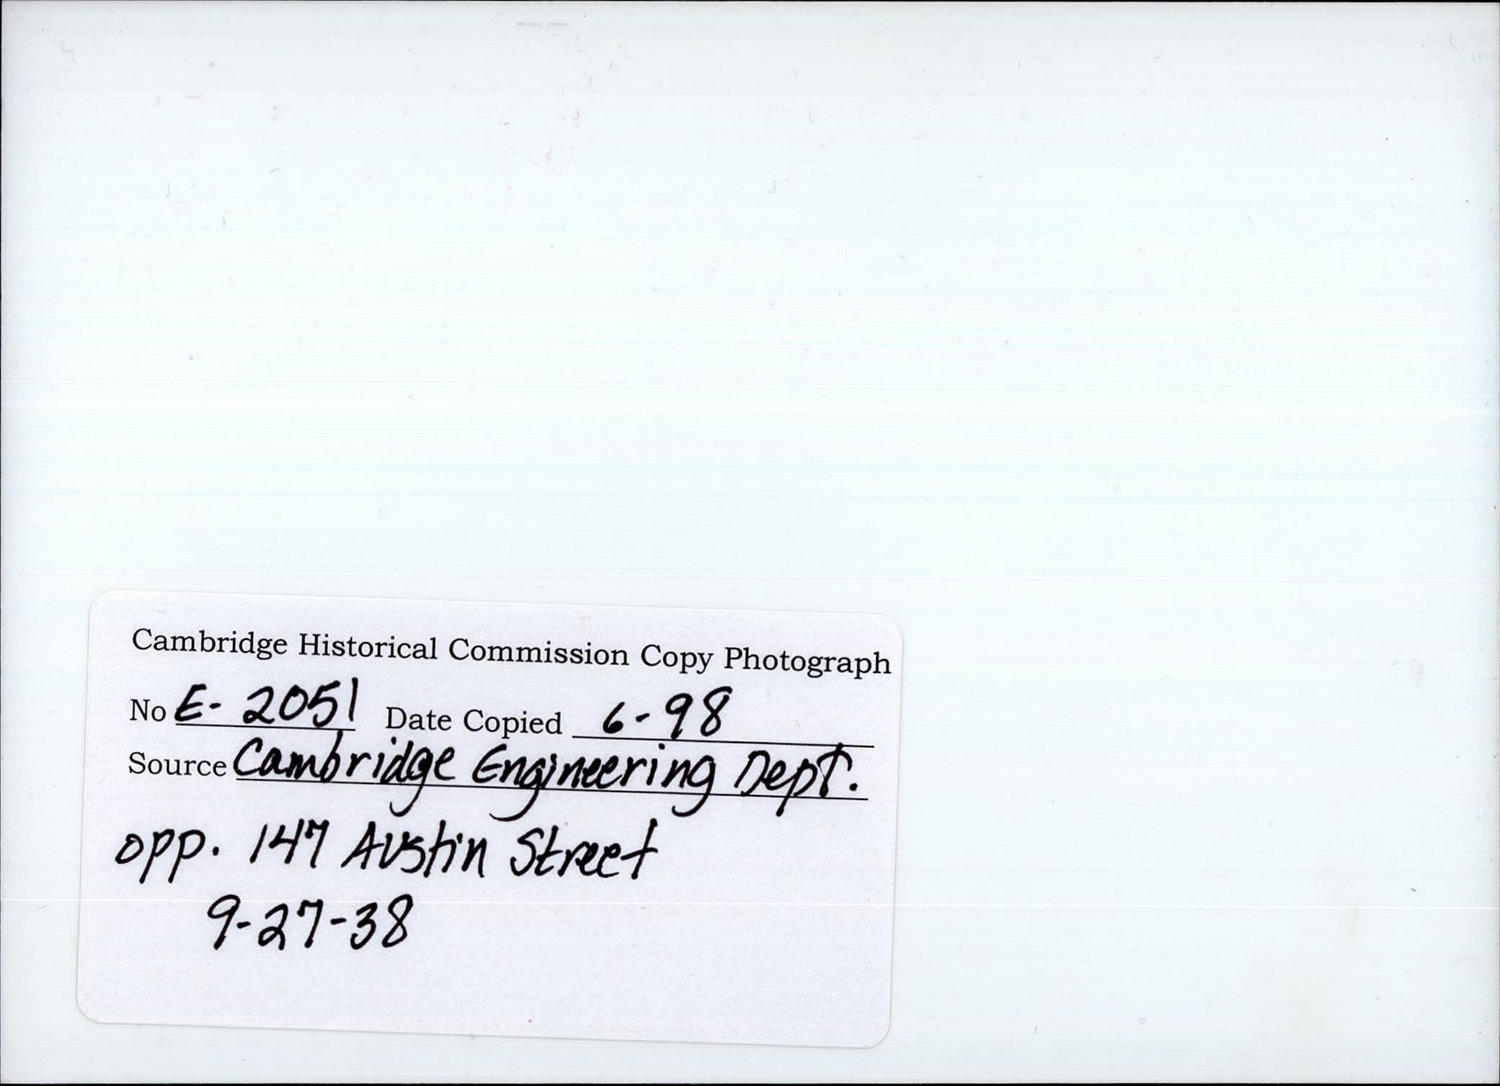 Cambridge Historical Commission Copy Photograph
No E-2051 Date Copied 6-98
Source Cambridge Engineering Dept.
opp. 147 Austin Street
9-27-38